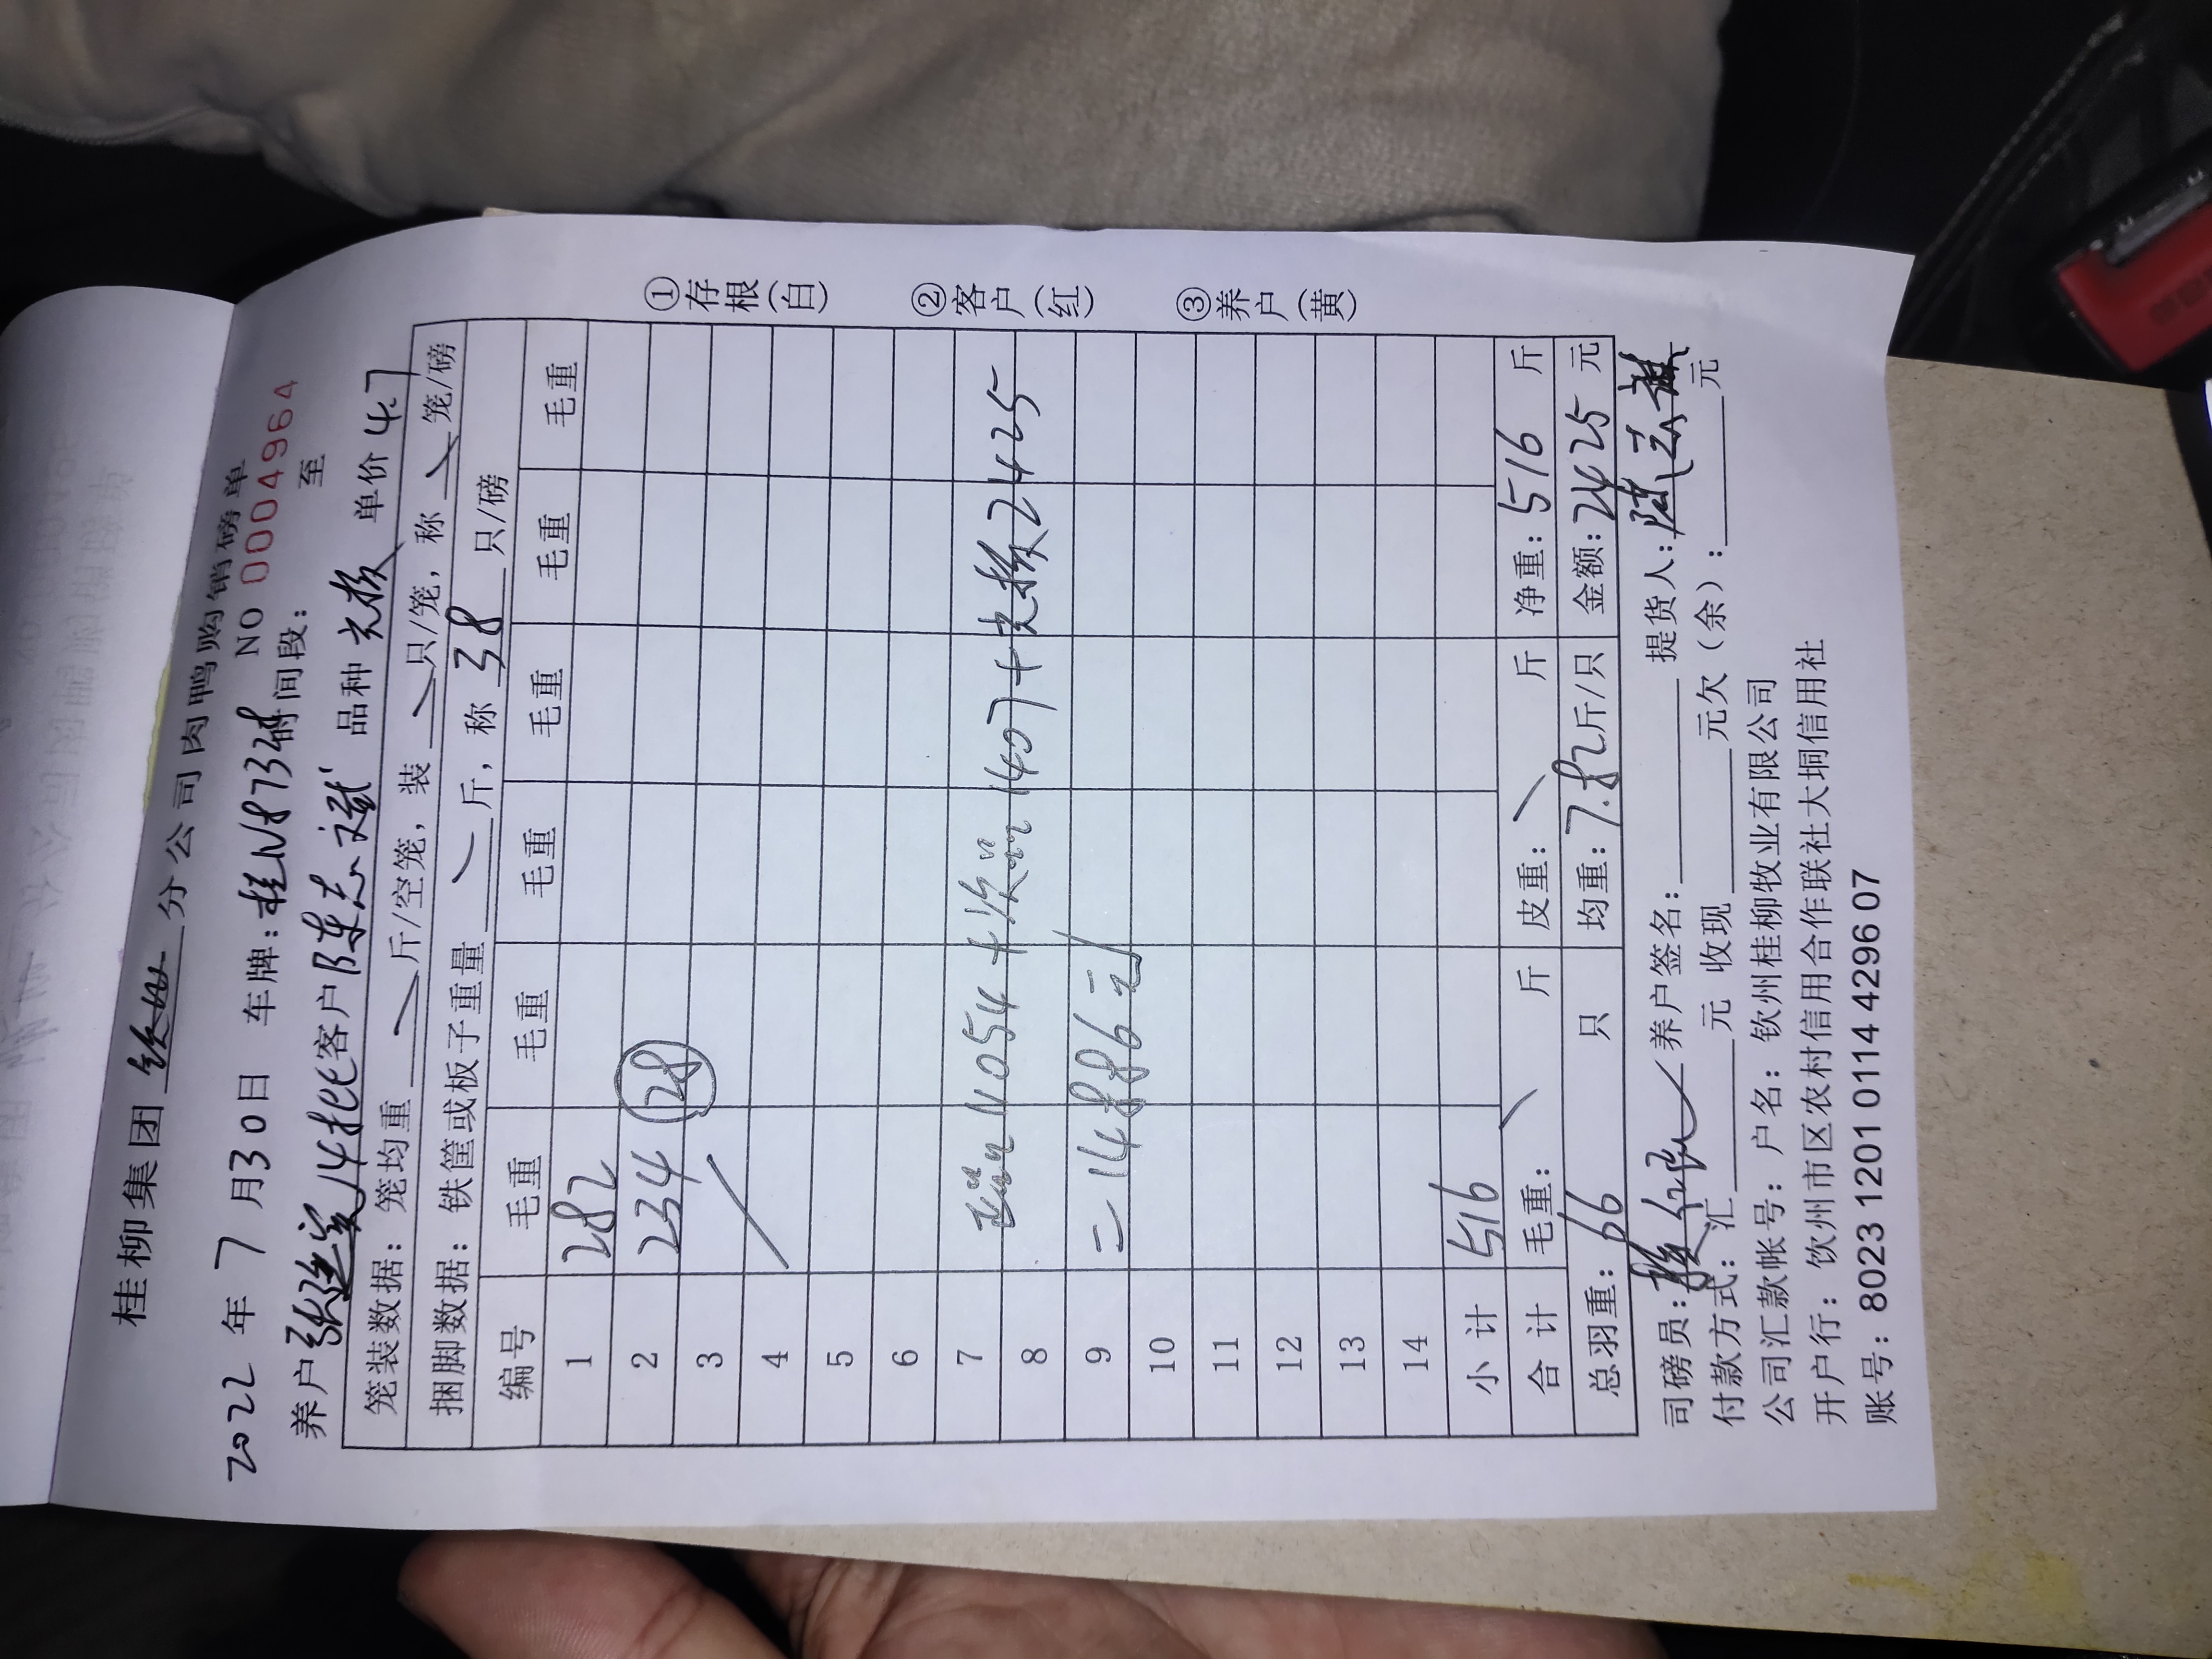 桂柳集团 钦州 分公司肉鸭购销磅单
2022年7月30日 车牌:桂N8732 NO 0004964
时间段: 至
养户 14批 客户陈志斌 品种 单价 4.7
笼装数据: 笼均重 斤/空笼, 装 只/笼, 称 笼/磅
捆脚数据: 铁筐或板子重量 斤, 称 38 只/磅
编号 毛重 毛重 毛重 毛重 毛重 毛重
1 282
2 234 (28)
3
4
5
6
7
8 11054+次 1407+ 2425
9 =14886元
10
11
12
13
14
小计 516
合计 毛重: 斤 皮重: 斤 净重: 516 斤
总羽重: 66 只 均重: 7.82斤/只 金额: 2425 元
司磅员: 养户签名: 提货人:
付款方式: 汇 元 收现 元欠(余): 元
公司汇款帐号: 户名: 钦州桂柳牧业有限公司
开户行: 钦州市区农村信用合作联社大垌信用社
账号: 8023 1201 0114 4296 07
①存根(白)
②客户(红)
③养户(黄)